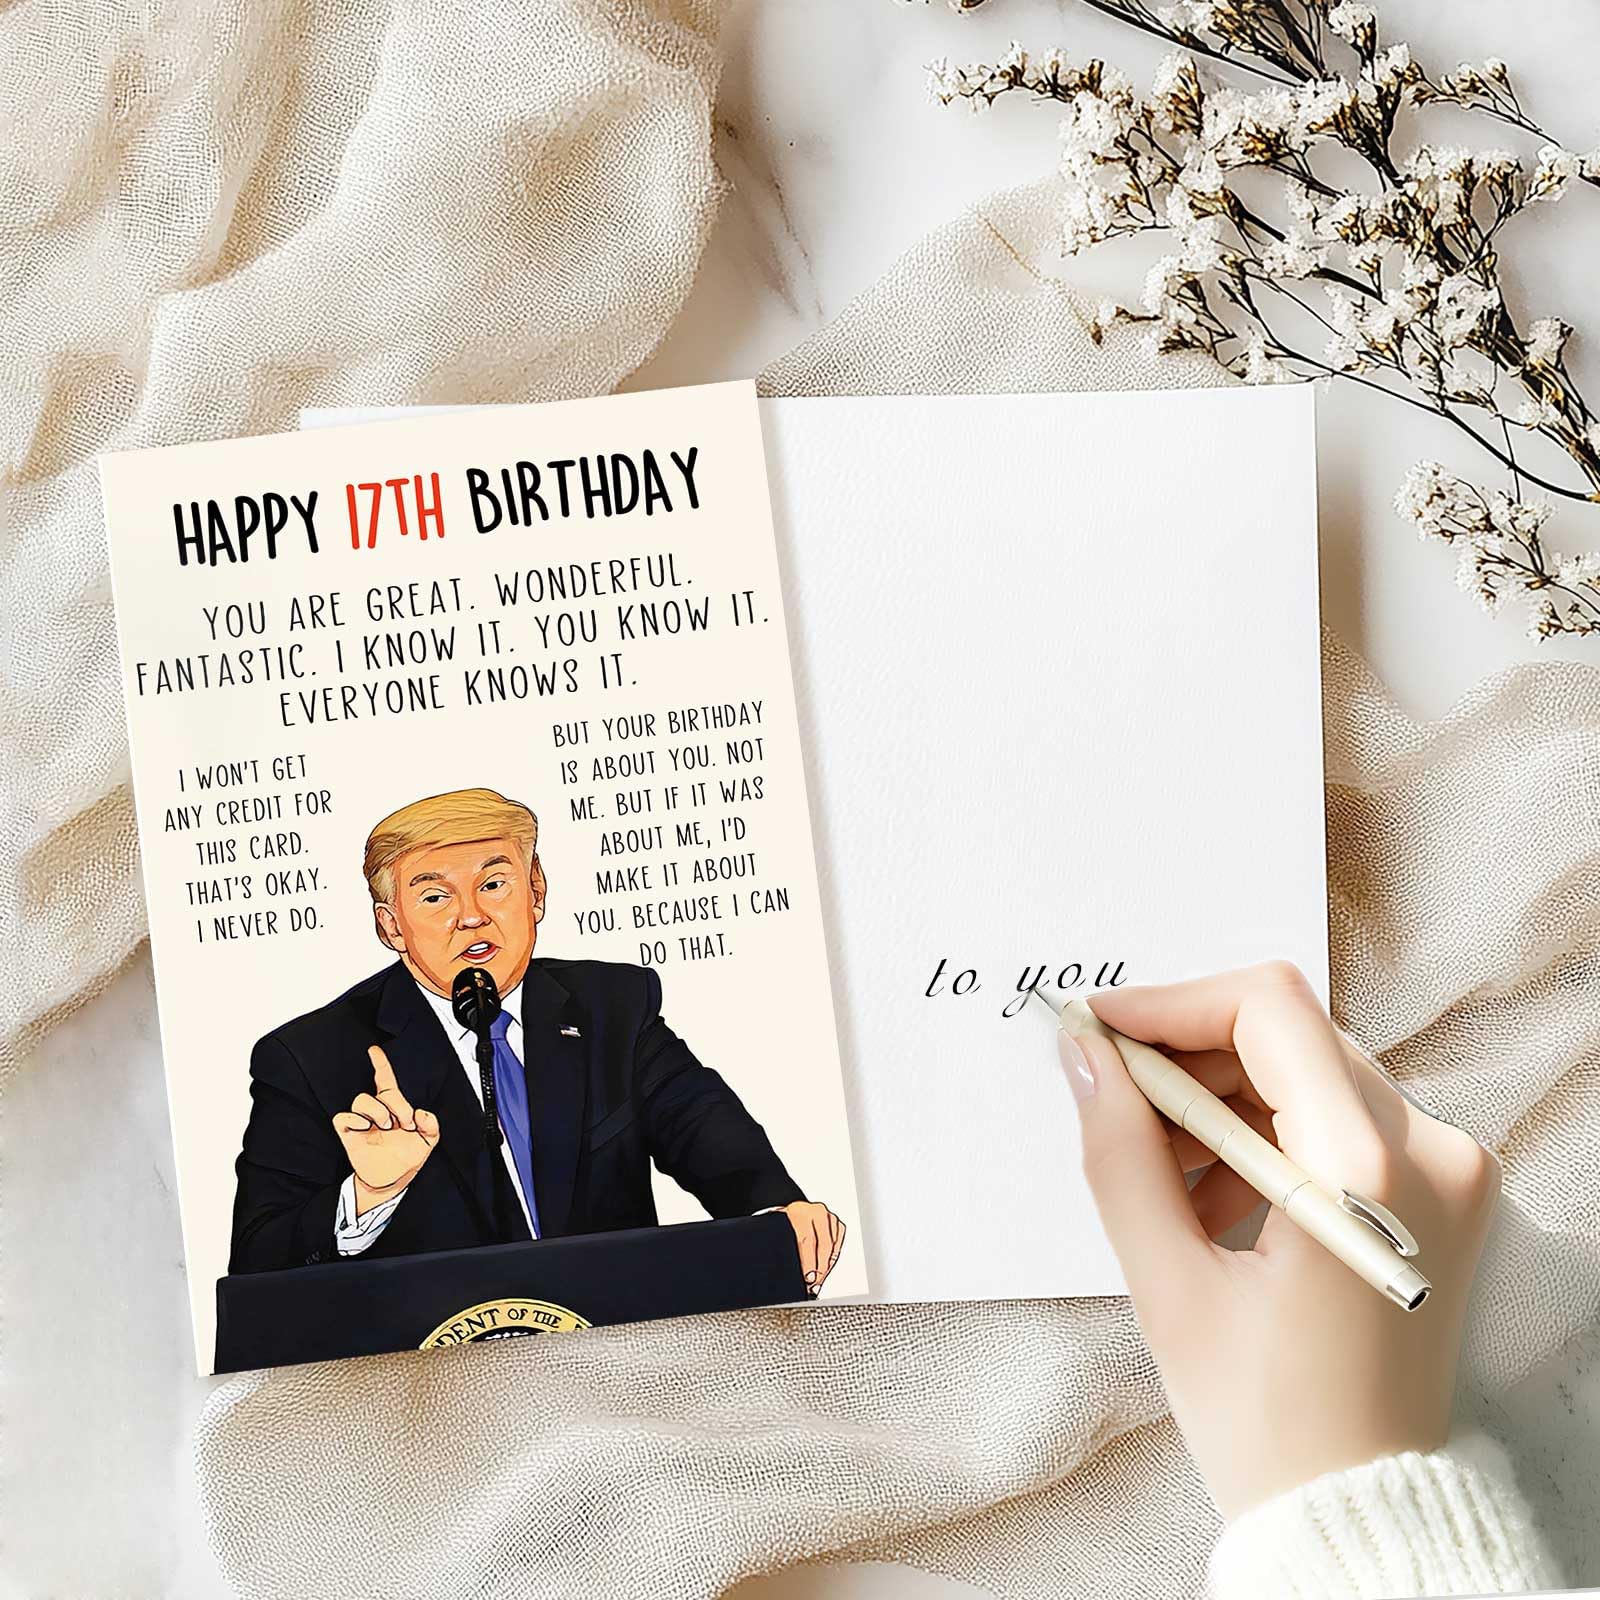 HAPPY 17TH BIRTHDAY
YOU ARE GREAT. WONDERFUL.
FANTASTIC. I KNOW IT. YOU KNOW IT.
EVERYONE KNOWS IT.
I WON'T GET
ANY CREDIT FOR
THIS CARD.
THAT'S OKAY.
I NEVER DO.
BUT YOUR BIRTHDAY
IS ABOUT YOU. NOT
ME. BUT IF IT WAS
ABOUT ME, I'D
MAKE IT ABOUT
YOU. BECAUSE I CAN
DO THAT.
DENT OF THE
to you